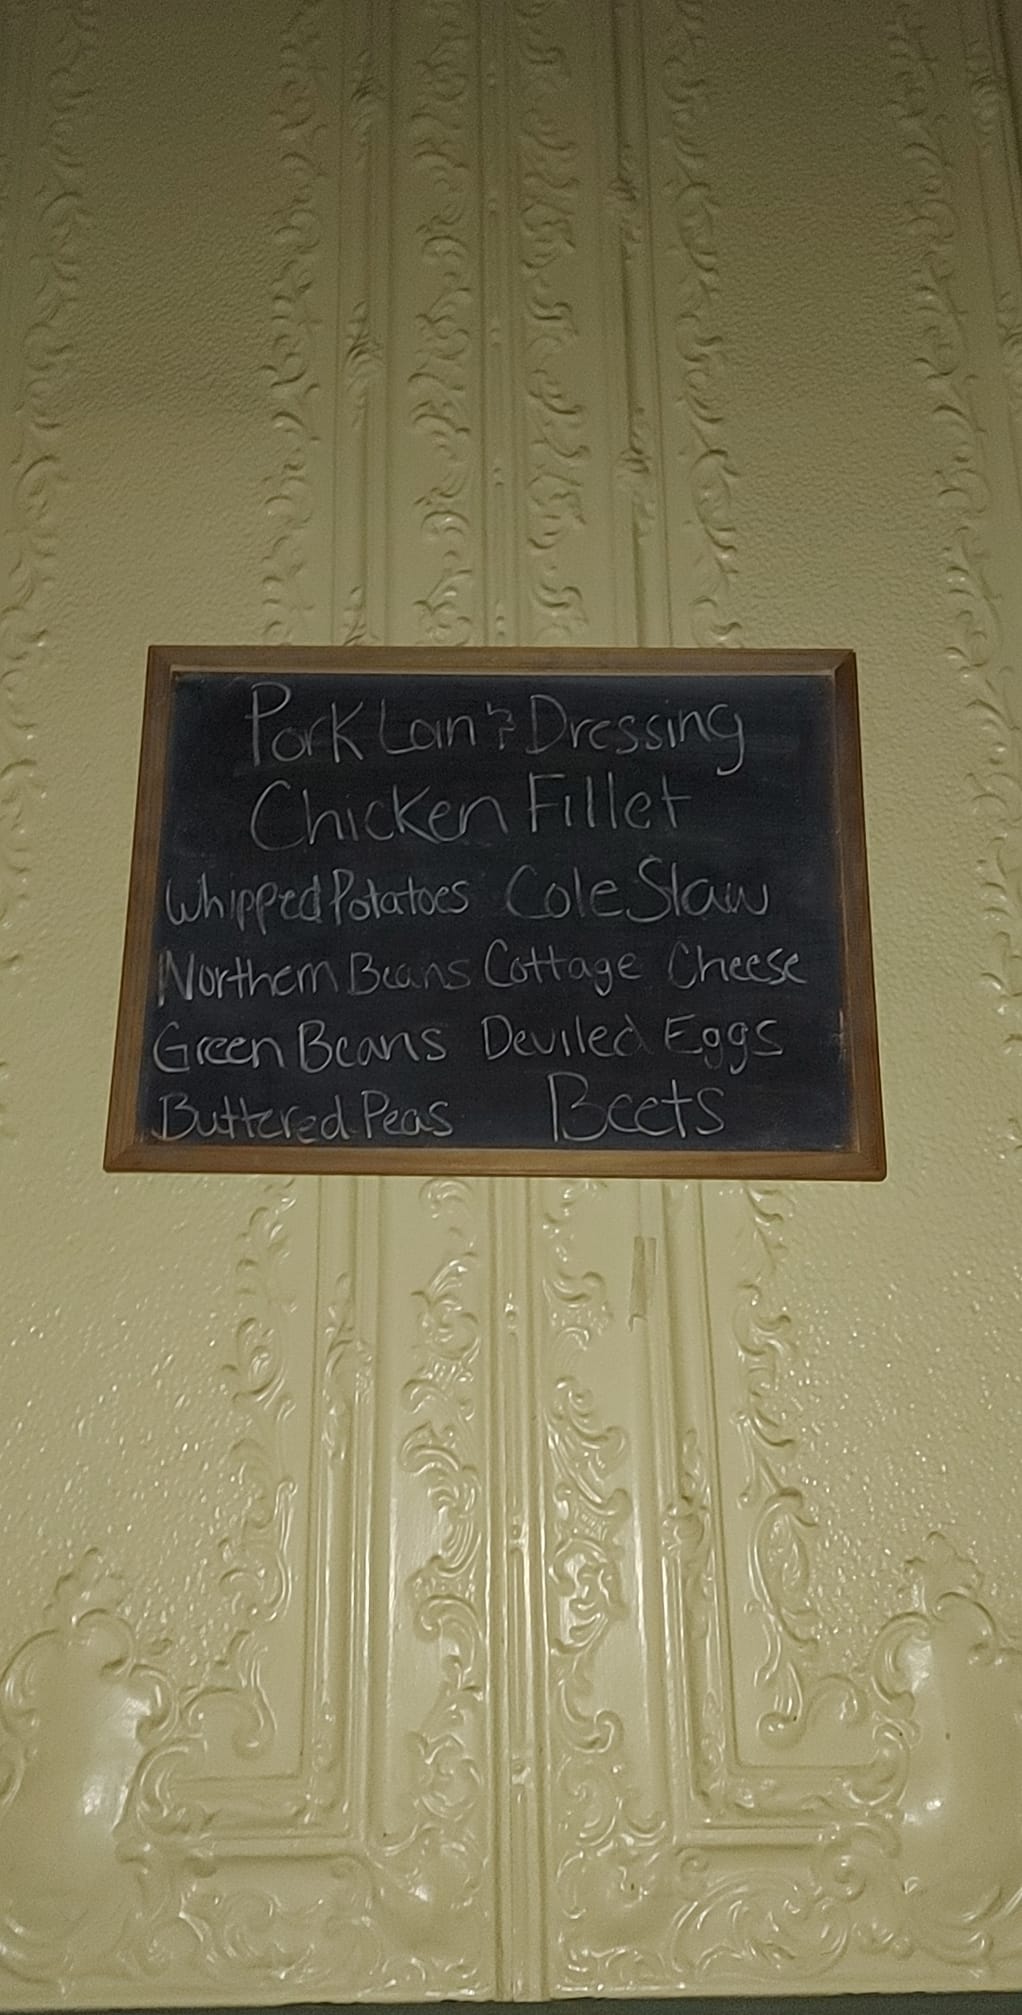 Pork Loin & Dressing
Chicken Fillet
Whipped Potatoes Cole Slaw
Northern Beans Cottage Cheese
Green Beans Deviled Eggs
Buttered Peas Beets